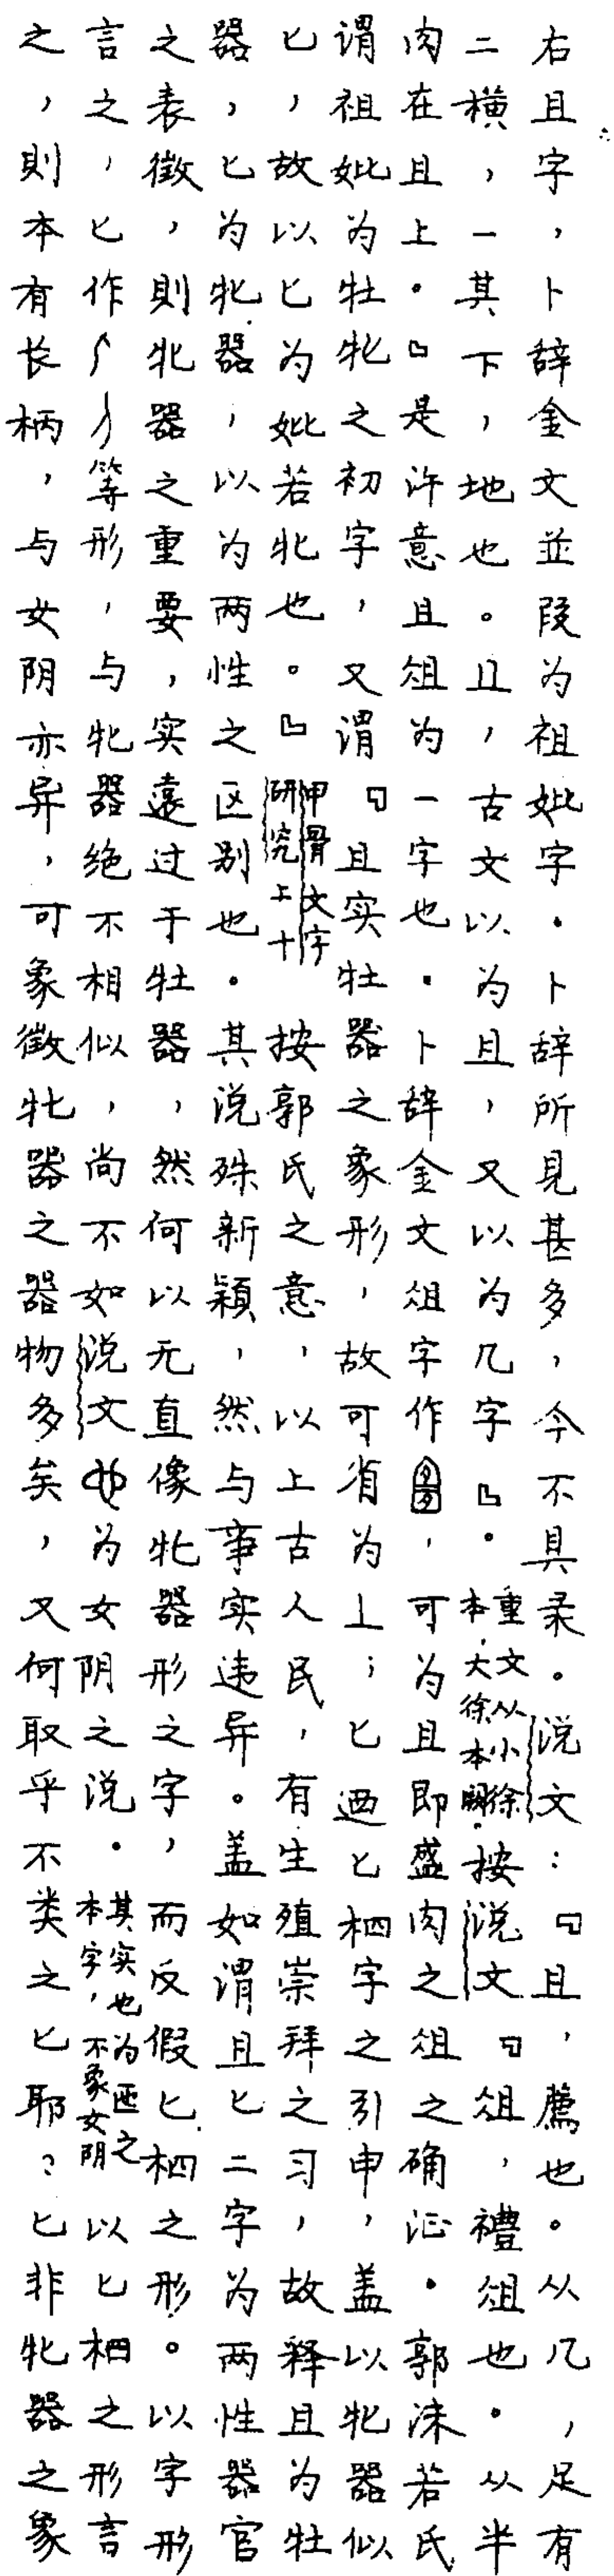 右且字，卜辞金文並段为祖妣字．卜辞所見甚多，今不具录。说文：『且，薦也。从几，足有
二横，一其下，地也。且，古文以为且，又以为几字』．重文从小徐本，大徐本㪽．按说文『俎，禮俎也．从半
肉在且上．』是许意且俎为一字也．卜辞金文俎字作，可为且即盛肉之俎之确证．郭沫若氏
谓祖妣为牡牝之初字，又谓『且实牡器之象形，故可省为丄；匕迺匕柶字之引申，盖以牝器似
匕，故以匕为妣若牝也。』甲骨文字研究上十按郭氏之意，以上古人民，有生殖崇拜之习，故释且为牡
器，匕为牝器，以为两性之区别也．其说殊新颖，然与事实违异。盖如谓且匕二字为两性器官
之表徵，則牝器之重要，实遠过于牡器，然何以无直像牝器形之字，而反假匕柶之形。以字形
言之，匕作等形，与牝器绝不相似，尚不如说文也为女阴之说．其实也为匜之本字，不象女阴以匕柶之形言
之，則本有长柄，与女阴亦异，可象徵牝器之器物多矣，又何取乎不类之匕耶？匕非牝器之象